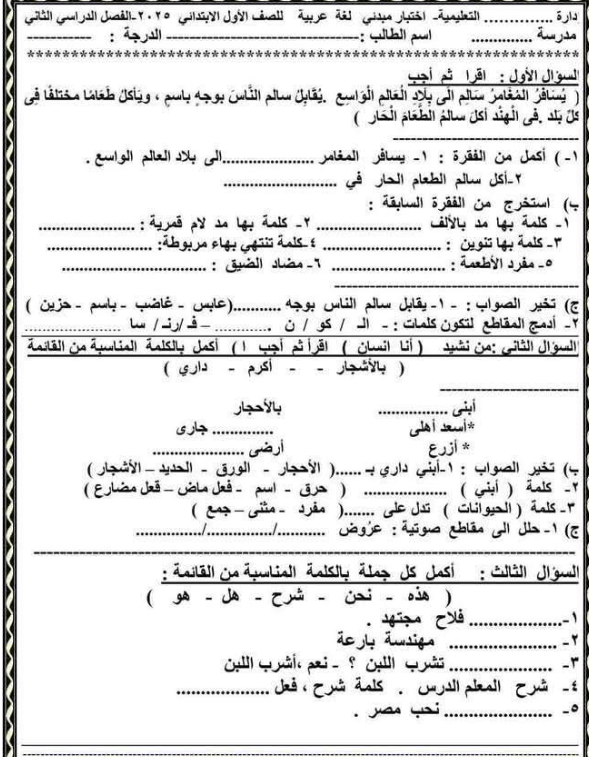 دارة .............. التعليمية- اختبار مبدئي لغة عربية للصف الأول الابتدائي ٢٠٢٥-الفصل الدراسي الثاني
مدرسة ............. اسم الطالب :------------------------ الدرجة : ----------
************************************************************
السؤال الأول : اقرا ثم أجب
( يُسَافِرُ المُغَامِرُ سَالِم الَى بِلَادِ الْعَالَمِ الْوَاسِعِ .يُقَابِلُ سالم النَّاسَ بوجهٍ باسمٍ ، ويَأكلُ طَعَامًا مختلفًا فِى
كلِّ بَلد .فى الْهِنْد أكلَ سالمُ الطَّعَامَ الْحَار )
١- ) أكمل من الفقرة : ١- يسافر المغامر ....................الى بلاد العالم الواسع .
٢-أكل سالم الطعام الحار في ..........................
ب) استخرج من الفقرة السابقة :
١- كلمة بها مد بالألف ........................ ٢- كلمة بها مد لام قمرية : ......................
٣- كلمة بها تنوين : ........................... ٤-كلمة تنتهي بهاء مربوطة: ........................
٥- مفرد الأطعمة : .............................. ٦- مضاد الضيق : .................................
ج) تخير الصواب : - ١- يقابل سالم الناس بوجه ...........(عابس - غاضب - باسم - حزين )
٢- أدمج المقاطع لتكون كلمات : - الـ / كو / ن .............. – فـ /رنـ / سا ......................
السؤال الثاني :من نشيد ( أنا انسان ) اقرأ ثم أجب ١ ) أكمل بالكلمة المناسبة من القائمة
( بالأشجار - - أكرم - داري )
أبنى ................ بالأحجار
*أسعد أهلى .............. جارى
* أزرع أرضى .....................
ب) تخير الصواب : ١-أبني داري بـ ......( الأحجار - الورق - الحديد – الأشجار )
٢- كلمة ( أبني ) ................... ( حرق - اسم - فعل ماض – فعل مضارع )
٣- كلمة ( الحيوانات ) تدل على .......( مفرد - مثنى – جمع )
ج) ١- حلل الى مقاطع صوتية : عَرُوض .........../.............../...............
السؤال الثالث : أكمل كل جملة بالكلمة المناسبة من القائمة :
( هذه - نحن - شرح - هل - هو )
١-..................... فلاح مجتهد .
٢- ........................ مهندسة بارعة
٣- ....................... تشرب اللبن ؟ - نعم ،أشرب اللبن
٤- شرح المعلم الدرس . كلمة شرح ، فعل .....................
٥- ........................ نحب مصر .